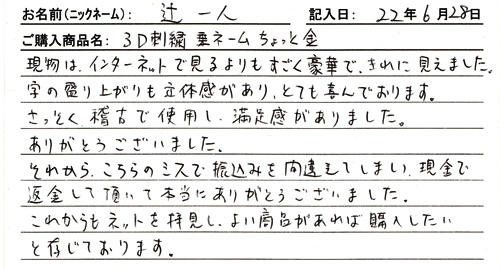 お名前(ニックネーム): 辻 一人 記入日: 22年6月28日
ご購入商品名: 3D刺繍 垂ネーム ちょっと金
現物は、インターネットで見るよりもすごく豪華で、きれいに見えました。
字の盛り上がりも立体感があり、とても喜んでおります。
さっそく、稽古で使用し、満足感がありました。
ありがとうございました。
それから、こちらのミスで振込みを間違えてしまい、現金で
返金して頂いて本当にありがとうございました。
これからもネットを拝見し、よい商品があれば購入したい
と存じております。